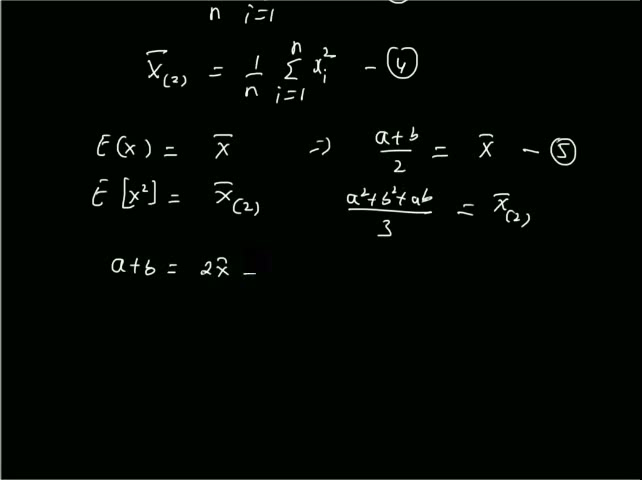 n i=1
x̄(2) = 1/n Σ_{i=1}^{n} x_i^2 - (4)
E(x) = x̄ ⇒ a+b/2 = x̄ - (5)
E[x²] = x̄(2) a²+b²+ab/3 = x̄(2)
a+b = 2x̄ -